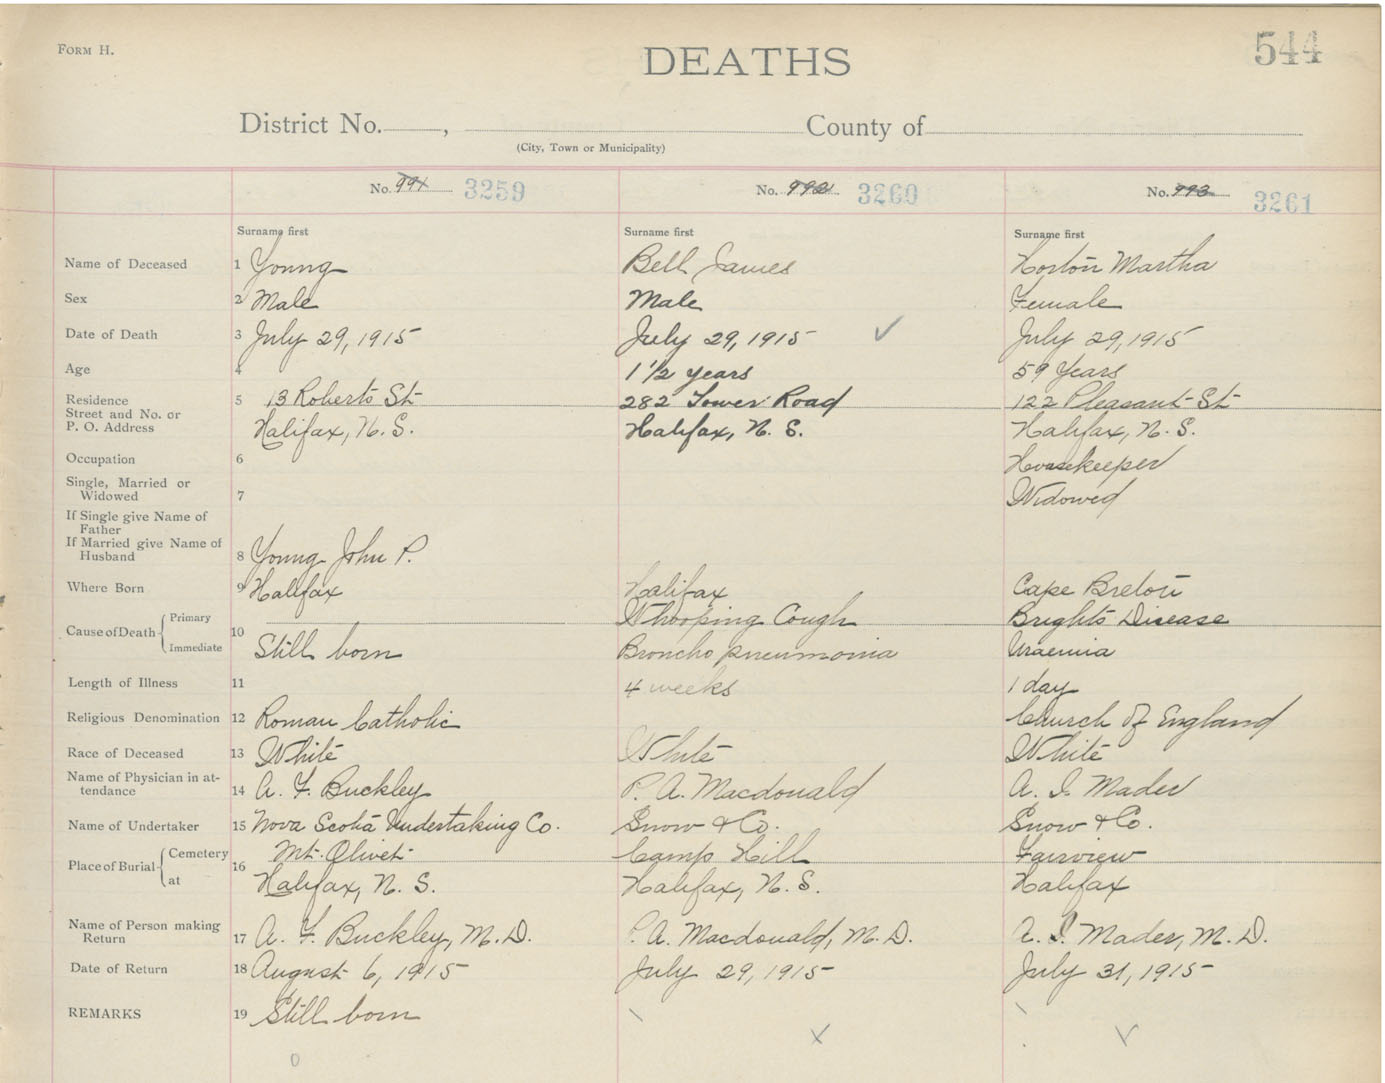 FORM H.
DEATHS
544
District No. , County of
(City, Town or Municipality)
No. 991 3259
No. 992 3260
No. 993 3261
Surname first
Surname first
Surname first
Name of Deceased 1 Young Bell James Horton Martha
Sex 2 Male Male Female
Date of Death 3 July 29, 1915 July 29, 1915 July 29, 1915
Age 4 1 1/2 years 59 Years
Residence 5 13 Roberts St 282 Tower Road 122 Pleasant St
Street and No. or
P. O. Address Halifax, N. S. Halifax, N. S. Halifax, N. S.
Occupation 6 Housekeeper
Single, Married or
Widowed 7 Widowed
If Single give Name of
Father
If Married give Name of
Husband 8 Young John P.
Where Born 9 Halifax Halifax Cape Breton
Cause of Death Primary 10 Whooping Cough Brights Disease
Immediate Still born Broncho pneumonia Uraemia
Length of Illness 11 4 weeks 1 day
Religious Denomination 12 Roman Catholic Church of England
Race of Deceased 13 White White White
Name of Physician in at-
tendance 14 A. F. Buckley P. A. Macdonald A. I. Mader
Name of Undertaker 15 Nova Scotia Undertaking Co. Snow & Co. Snow & Co.
Place of Burial Cemetery 16 Mt. Olivet Camp Hill Fairview
at Halifax, N. S. Halifax, N. S. Halifax
Name of Person making
Return 17 A. F. Buckley, M. D. P. A. Macdonald, M. D. A. I. Mader, M. D.
Date of Return 18 August 6, 1915 July 29, 1915 July 31, 1915
REMARKS 19 Still born